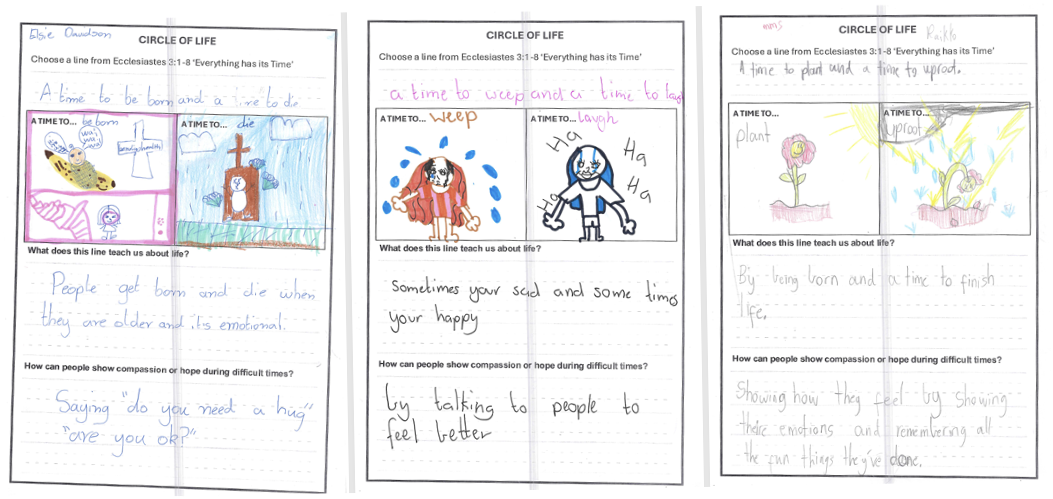 Elsie Davidson
CIRCLE OF LIFE
Choose a line from Ecclesiastes 3:1-8 'Everything has its Time'
A time to be born and a time to die
A TIME TO... be born
A TIME TO... die
What does this line teach us about life?
People get born and die when
they are older and its emotional.
How can people show compassion or hope during difficult times?
Saying "do you need a hug"
"are you ok?"
CIRCLE OF LIFE
Choose a line from Ecclesiastes 3:1-8 'Everything has its Time'
a time to weep and a time to laugh
A TIME TO... weep
A TIME TO... laugh
Ha
Ha
Ha
Ha
What does this line teach us about life?
Sometimes your sad and some times
your happy
How can people show compassion or hope during difficult times?
by talking to people to
feel better
CIRCLE OF LIFE
Choose a line from Ecclesiastes 3:1-8 'Everything has its Time'
A time to plant and a time to uproot.
A TIME TO...
plant
A TIME TO...
uproot
What does this line teach us about life?
By being born and a time to finish
life.
How can people show compassion or hope during difficult times?
Showing how they feel by showing
there emotions and remembering all
the fun things they've done.